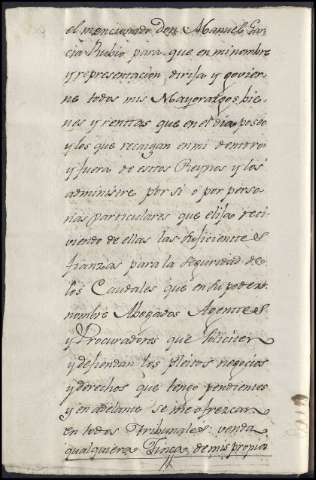 el mencionado Don Manuel Gar
cia Rubio para que en mi nombre
y representacion, dirija y govier
ne todos mis Mayorazgos, bie
nes y rentas que en el dia poseo
y los que recaigan en mi dentro
y fuera de estos Reynos y los
administre por si o por perso
nas particulares que elija reci
viendo de ellas las suficientes
fianzas para la seguridad de
los Caudales que en su poder
nombre Abogados Agentes
y Procuradores que soliciten
y defiendan los pleitos negocios
y derechos que tengo pendientes
y en adelante se me ofrezcan
en todos tribunales: venda
qualquiera Fincas de mis propias